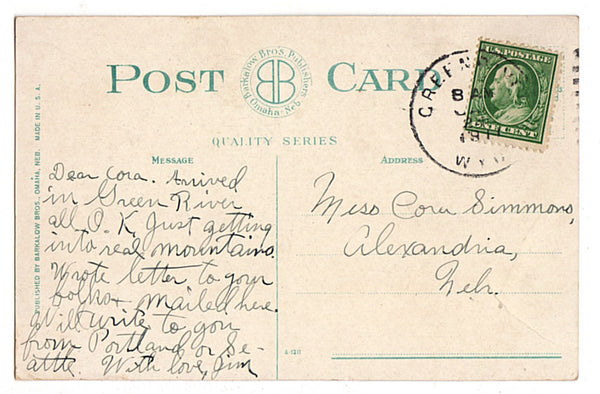 POST CARD
Barkalow Bros. Publishers
Omaha, Neb.
B B
U.S. POSTAGE
ONE CENT
GREEN
WYO
QUALITY SERIES
MESSAGE
ADDRESS
Dear Cora. Arrived
in Green River
all O.K. Just getting
into real mountains.
Wrote letter to your
folks + mailed here.
Will write to you
from Portland or Se-
attle. With love, Jim
Miss Cora Simmons,
Alexandria,
Nebr.
A-1211
PUBLISHED BY BARKALOW BROS., OMAHA, NEB. MADE IN U.S.A.